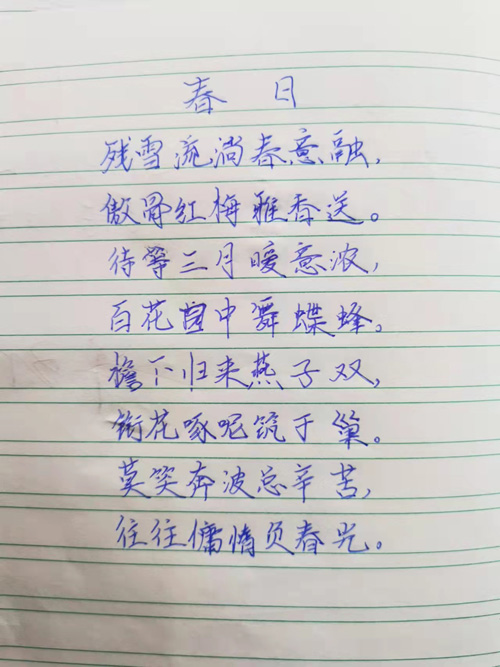 春 日
残雪流淌春意融，
傲骨红梅雅香送。
待等三月暖意浓，
百花园中舞蝶蜂。
檐下归来燕子双，
衔花啄呢筑于巢。
莫笑奔波总辛苦，
往往慵惰负春光。